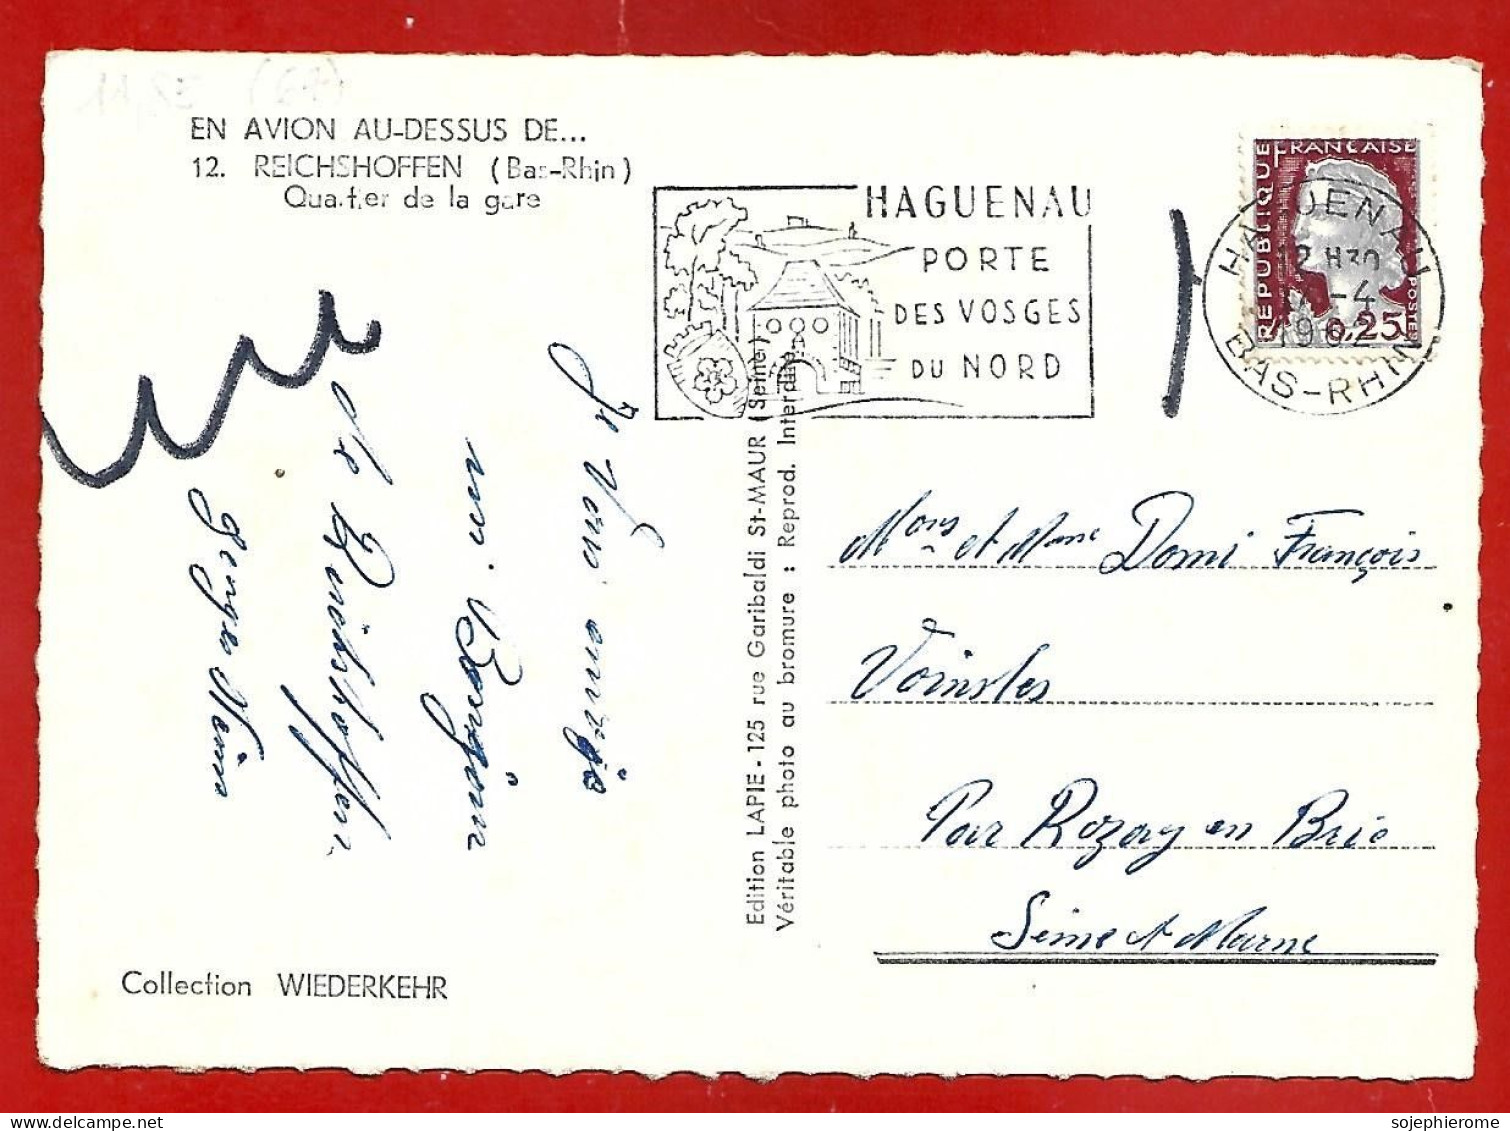 EN AVION AU-DESSUS DE...
12. REICHSHOFFEN (Bas-Rhin)
Quartier de la gare
HAGUENAU
PORTE
DES VOSGES
DU NORD
REPUBLIQUE FRANÇAISE
POSTES
0,25
HAGUENAU
12 H30
-4
19
BAS-RHIN
Je vous envoie
un Bonjour
de Reichshoffen
Mons et Mme Domi François
Voinsles
Par Rozay en Brie
Seine et Marne
Edition LAPIE - 125 rue Garibaldi St-MAUR (Seine)
Véritable photo au bromure : Reprod. Interdite
Collection WIEDERKEHR
sojephierome